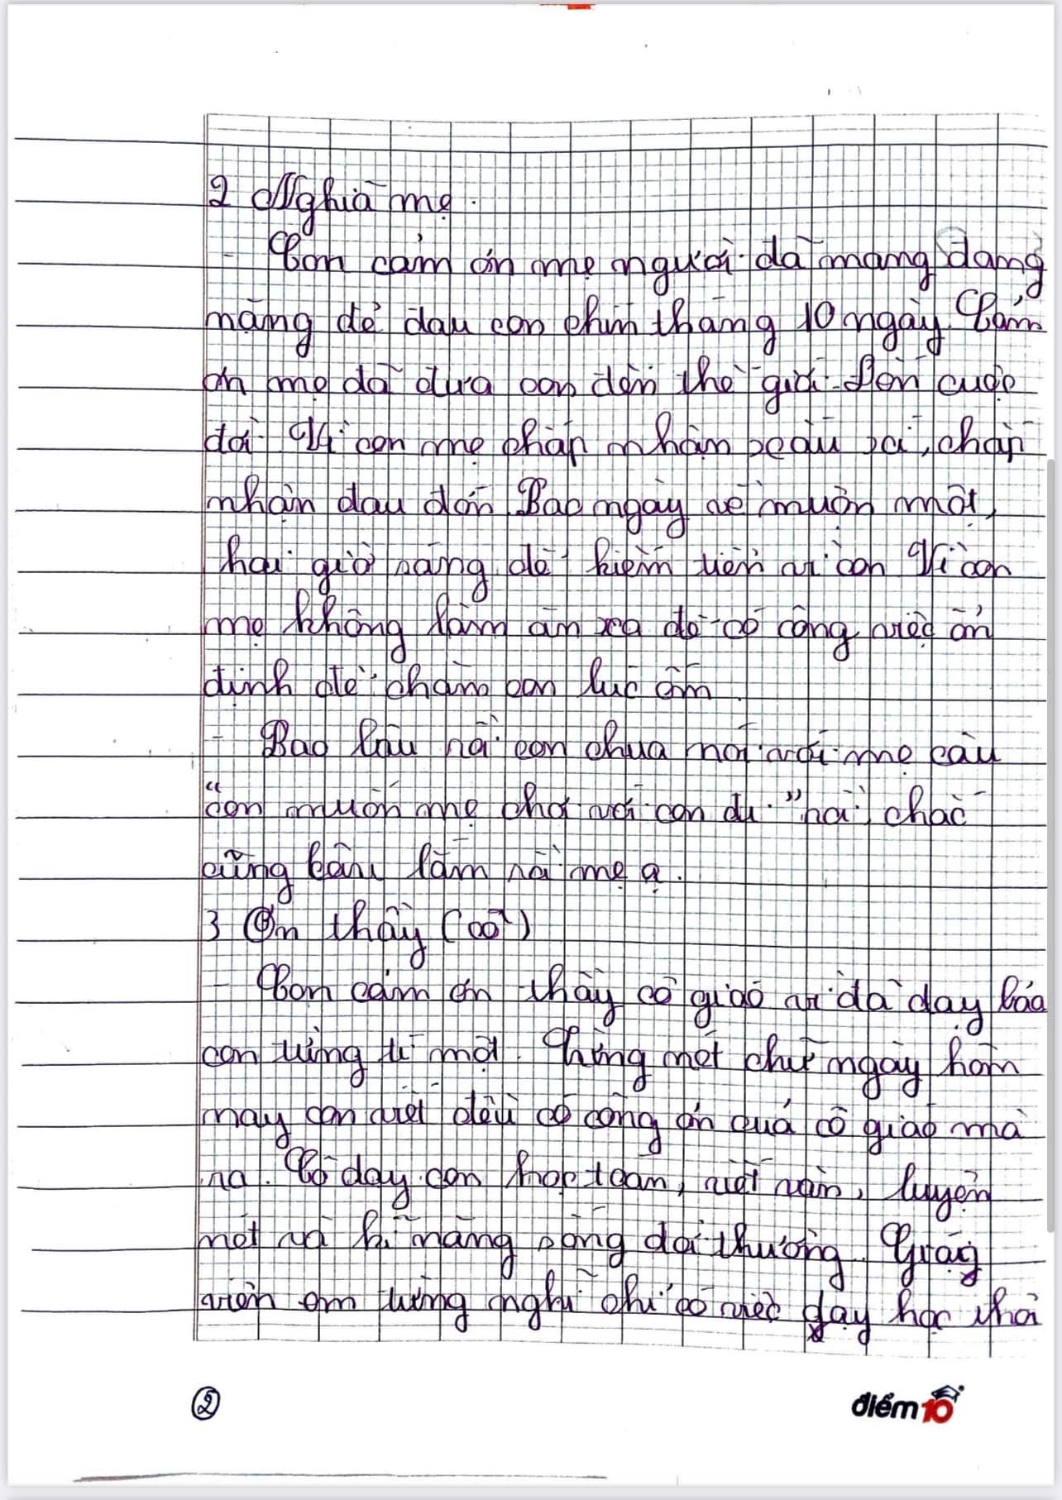 2 Nghĩa mẹ.
- Con cảm ơn mẹ người đã mang dang
nặng đẻ đau con chín tháng 10 ngày. Cảm
ơn mẹ đã đưa con đến thế giới. Đến cuộc
đời. Vì con mẹ chấp nhận xấu xí, chấp
nhận đau đớn. Bao ngày về muộn một,
hai giờ sáng để kiếm tiền vì con. Vì con
mẹ không làm ăn xa để có công việc ổn
định để chăm con lúc ốm.
- Bao lâu rồi con chưa nói với mẹ câu
"con muốn mẹ chơi với con đi" rồi, chắc
cũng lâu lắm rồi mẹ ạ.
3 Ơn thầy (cô)
- Con cảm ơn thầy cô giáo vì đã dạy bảo
con từng tí một. Từng nét chữ ngày hôm
nay con viết đều có công ơn quá cô giáo mà
ra. Cô dạy con học toán, viết văn, luyện
nét và kĩ năng sống đời thường. Giáo
viên em từng nghĩ chỉ có việc dạy học thôi
2
điểm10